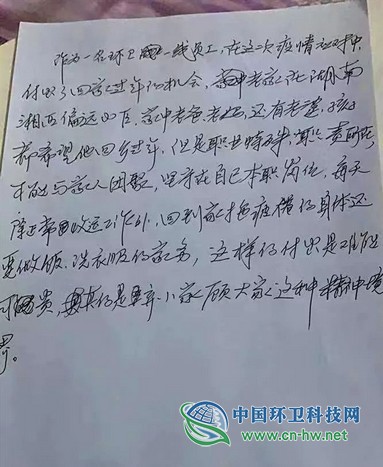 作为一名环卫一线员工，在这一次疫情之时
付出了回家过年的机会，家中老家在湖南
湘西偏远山区，家中老爸老妈，还有老婆、孩子
都希望他回乡过年，但是职业特殊，职责所在
不能与家人团聚，坚守在自己本职岗位，每天
除正常回收运工作外，回到家拖疲惫的身体还
要做饭、洗衣服的家务，这样的付出是
可贵，小家顾大家这种精神境
界。
中国环卫科技网
www.cn-hw.net